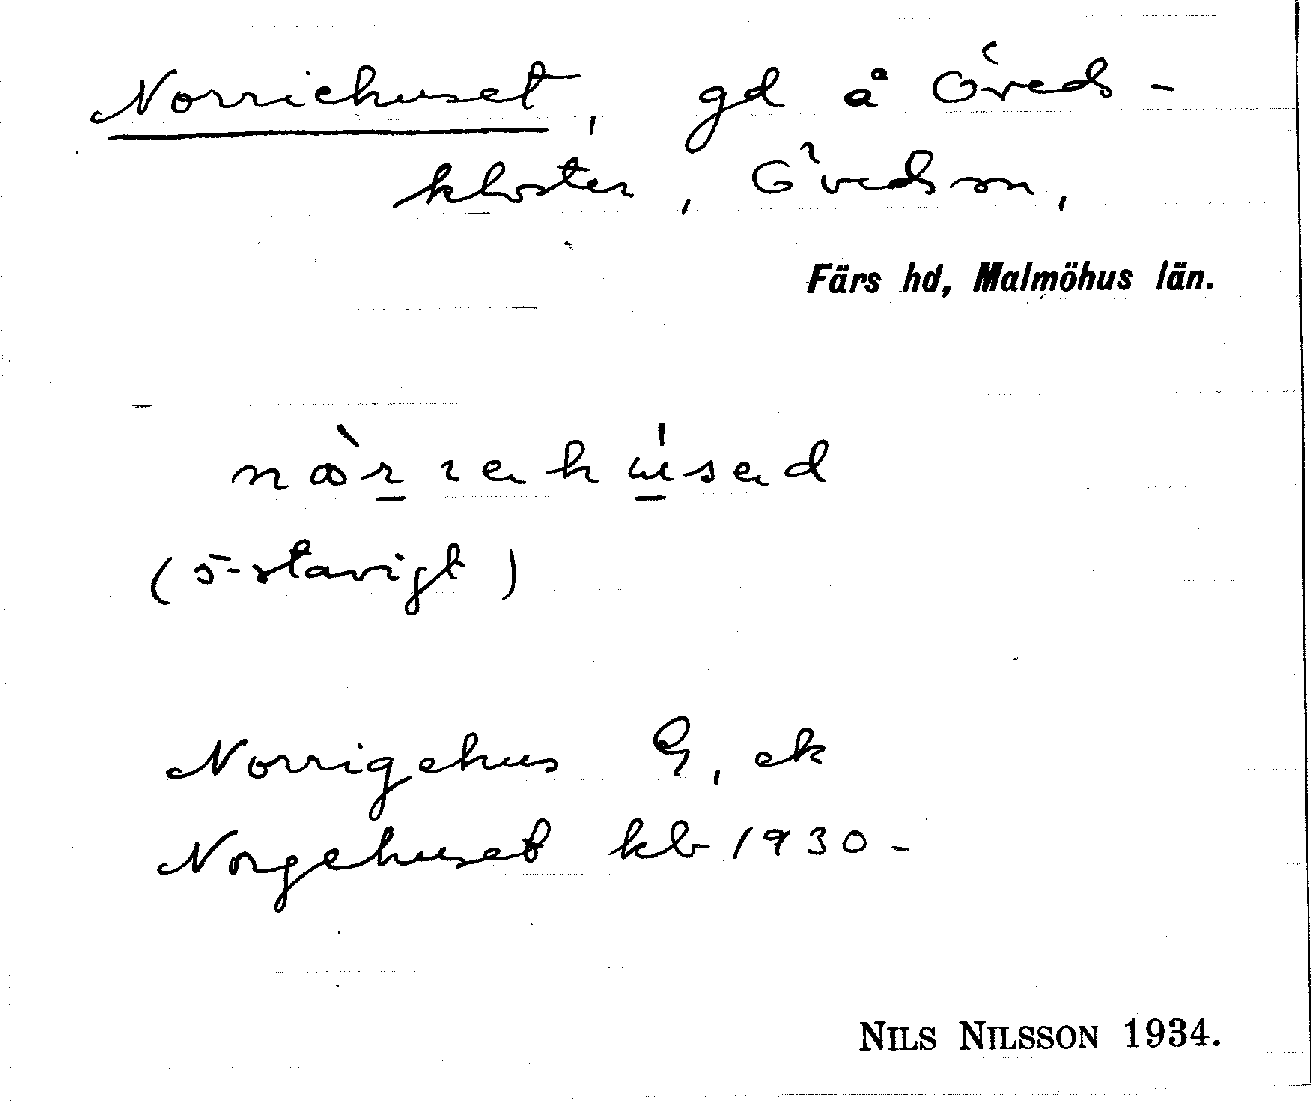 Norriehuset, gd å Öveds-
kloster, Öveds sn,
Färs hd, Malmöhus län.
(5-stavigt)
Norrigehus G, ek
Norgehuset kb 1930-
NILS NILSSON 1934.